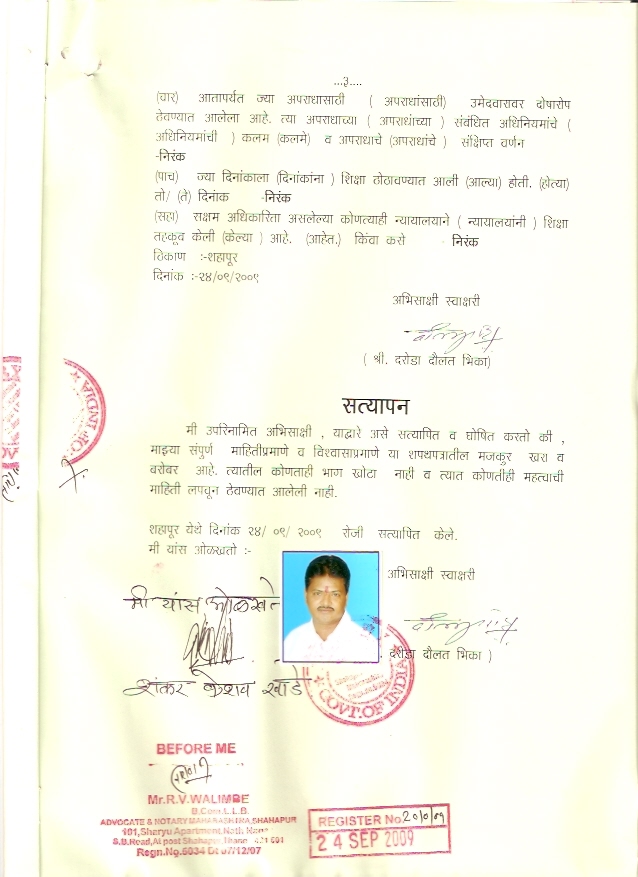 ...३....
(चार) आतापर्यत ज्या अपराधासाठी ( अपराधांसाठी) उमेदवारावर दोषारोप
ठेवण्यात आलेला आहे. त्या अपराधाच्या ( अपराधांच्या ) संबंधित अधिनियमांचे (
अधिनियमांची ) कलम (कलमे) व अपराधाचे (अपराधांचे ) संक्षिप्त वर्णन
-निरंक
(पाच) ज्या दिनांकाला (दिनांकांना ) शिक्षा ठोठावण्यात आली (आल्या) होती. (होत्या)
तो/ (ते) दिनांक -निरंक
(सहा) सक्षम अधिकारिता असलेल्या कोणत्याही न्यायालयाने ( न्यायालयांनी ) शिक्षा
तहकूब केली (केल्या ) आहे. (आहेत.) किंवा कसे - निरंक
ठिकाण :-शहापूर
दिनांक :-२४/०९/२००९
अभिसाक्षी स्वाक्षरी
( श्री. दरोडा दौलत भिका)
सत्यापन
मी उपरिनामित अभिसाक्षी , याद्वारे असे सत्यापित व घोषित करतो की ,
माझ्या संपुर्ण माहितीप्रमाणे व विश्वासाप्रमाणे या शपथपत्रातील मजकुर खरा व
बरोबर आहे. त्यातील कोणताही भाग खोटा नाही व त्यात कोणतीही महत्वाची
माहिती लपवून ठेवण्यात आलेली नाही.
शहापूर येथे दिनांक २४/ ०९/ २००९ रोजी सत्यापित केले.
मी यांस ओळखतो :-
अभिसाक्षी स्वाक्षरी
मी यांस ओळखतो
. दरोडा दौलत भिका )
शंकर केशव खाडे
GOVT.OF INDIA
OF INDIA
BEFORE ME
Mr.R.V.WALIMBE
B.Com.L.L.B.
ADVOCATE & NOTARY MAHARASHTRA,SHAHAPUR
101,Sharyu Apartment,Nath Nagar
S.B.Road,At post Shahapur, Thane 421 601
Regn.No.5034 Dt 07/12/07
REGISTER No.
24 SEP 2009